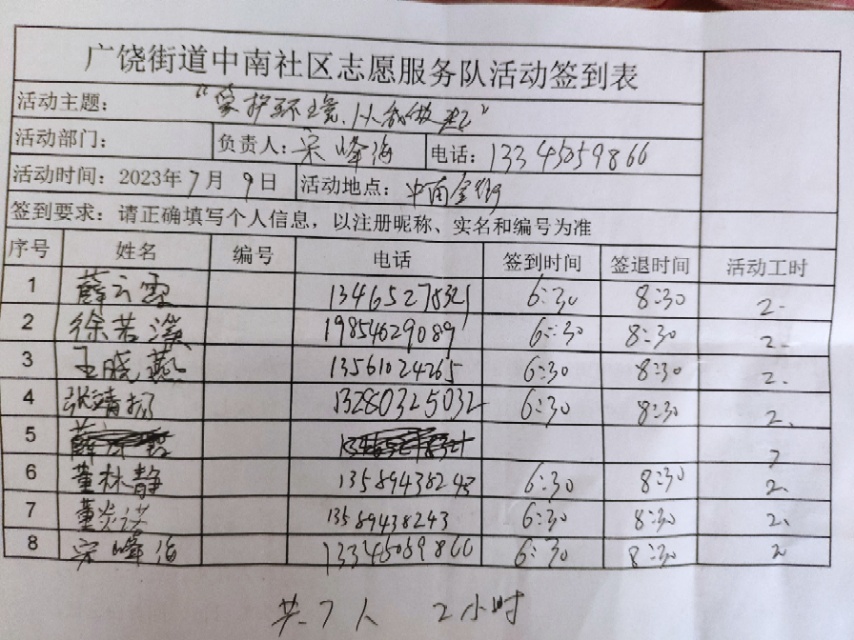 广饶街道中南社区志愿服务队活动签到表
活动主题：“爱护环境、从我做起”
活动部门： 负责人：宋峰海 电话：13345059866
活动时间：2023年7月9日 活动地点：中南金街
签到要求：请正确填写个人信息，以注册昵称、实名和编号为准
序号 姓名 编号 电话 签到时间 签退时间 活动工时
1 薛云霞 13465278321 6:30 8:30 2.
2 徐若溪 19854629089 6:30 8:30 2.
3 王晓燕 13561024265 6:30 8:30 2.
4 张靖扬 13280325032 6:30 8:30 2.
5
6 董林静 13589438243 6:30 8:30 2.
7 董 13589438243 6:30 8:30 2.
8 宋峰海 13345059866 6:30 8:30 2
共7人 2小时